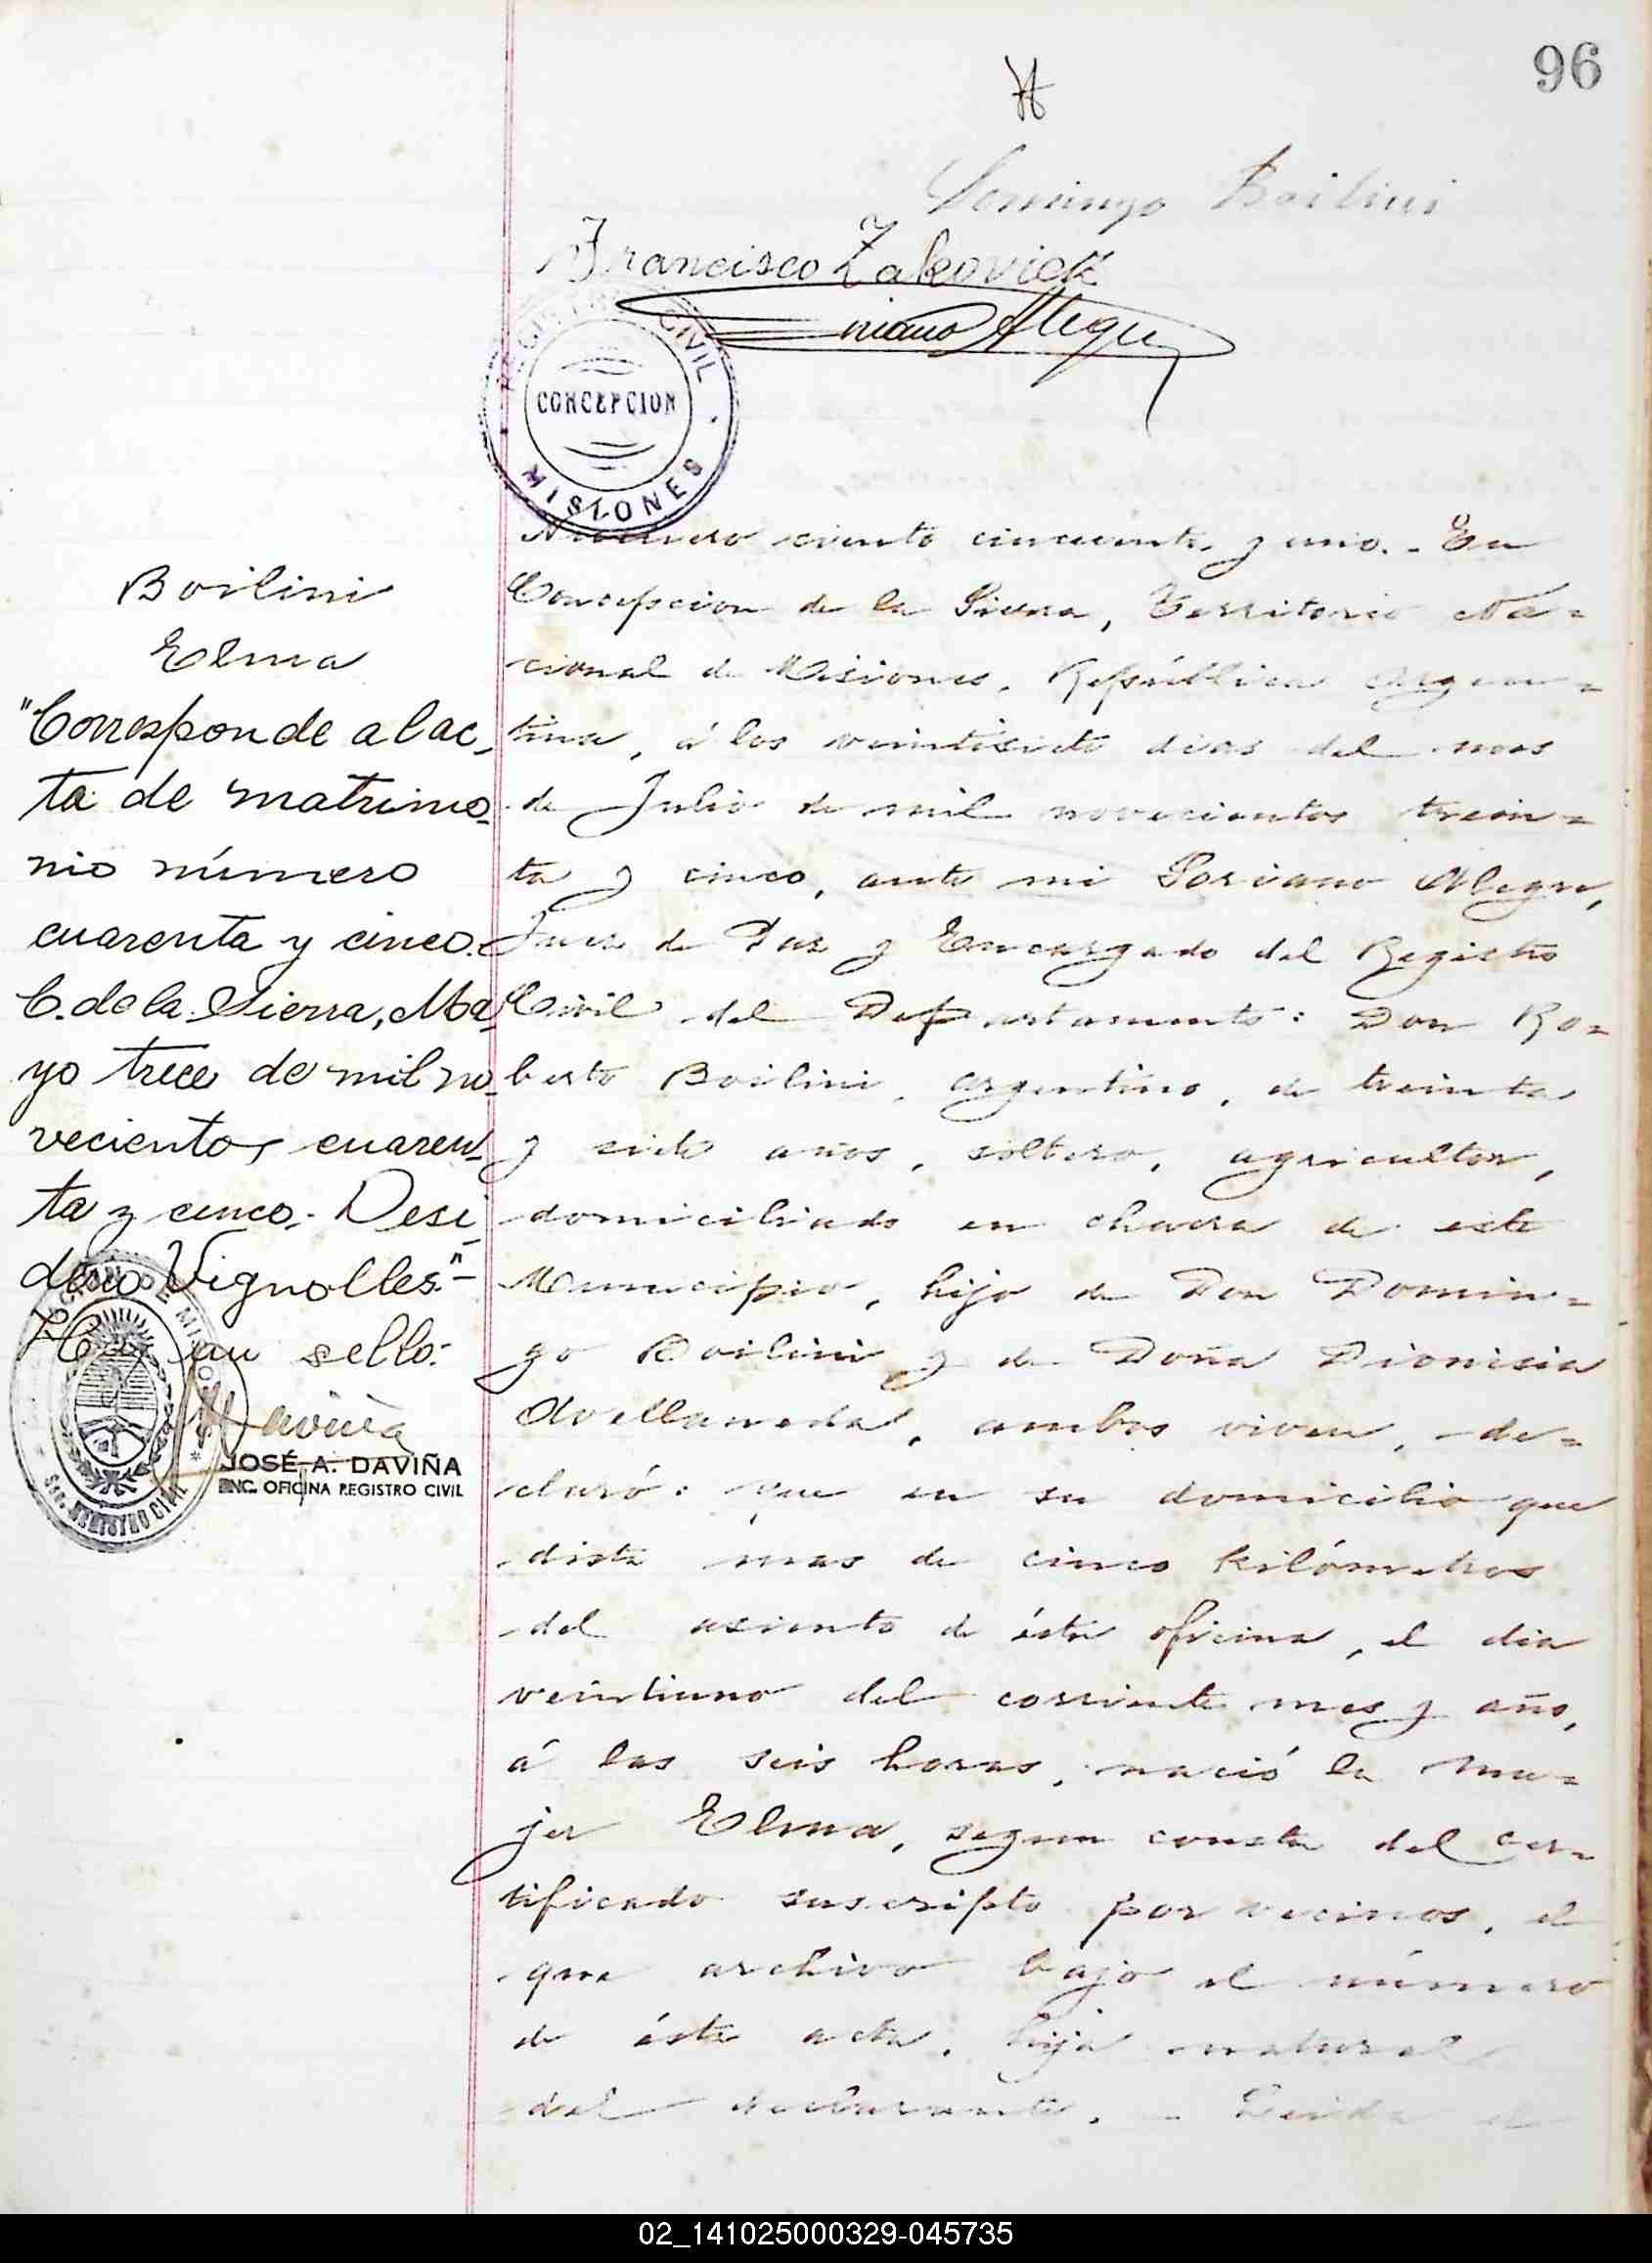 96
Domingo Boilini
Francisco Zakovick
REGISTRO CIVIL
CONCEPCION
MISIONES
Boilini
Elma
"Corresponde al ac-
ta de matrimo-
nio número
cuarenta y cinco.
C. de la Sierra, Ma-
yo trece de mil no-
vecientos cuaren-
ta y cinco.- Desi-
derio Vignolles."-
Hay un sello:
Daviña
JOSÉ A. DAVIÑA
ENC. OFICINA REGISTRO CIVIL
Número ciento cincuenta y uno. - En
Concepcion de la Sierra, Territorio Na=
cional de Misiones, República Argen=
tina, á los veintisiete dias del mes
de Julio de mil novecientos trein=
ta y cinco, ante mi Soriano Alegre,
Juez de Paz y Encargado del Registro
Civil del Departamento: Don Ro=
berto Boilini, argentino, de treinta
y siete años, soltero, agricultor,
domiciliado en chacra de este
Municipio, hijo de Don Domin=
go Boilini y de Doña Dionisia
Avellaneda, ambos viven, de=
claró: Que en su domicilio que
dista mas de cinco kilómetros
del asiento de ésta oficina, el dia
veintiuno del corriente mes y año,
á las seis horas, nació la mu=
jer Elma, segun consta del cer=
tificado suscripto por vecinos, el
que archivo bajo el número
de ésta acta, hija natural
del declarante. - Leida el
02_141025000329-045735